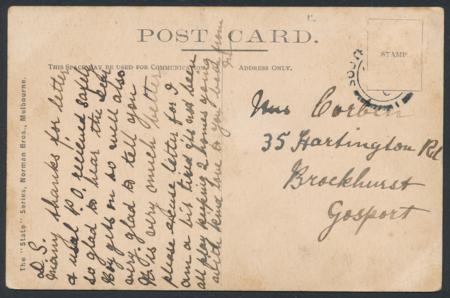 POST CARD.
THIS SPACE MAY BE USED FOR COMMUNICATION.
ADDRESS ONLY.
STAMP
The "State" Series, Norman Bros., Melbourne.
D. S.
Many thanks for letter
& usual P.O. received safely
so glad to hear the
Boy gets on so well also
very glad to tell you
is very much better
please excuse letter for I
am a bit tired its not been
all play keeping 2 homes going
with kind love to you both from
Mrs Corben
35 Hartington Rd
Brockhurst
Gosport